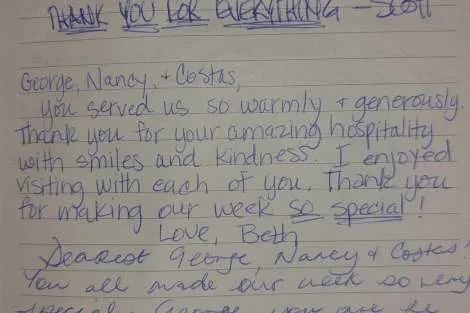 THANK YOU FOR EVERYTHING - Scott
George, Nancy, + Costas,
You served us so warmly + generously.
Thank you for your amazing hospitality
with smiles and kindness. I enjoyed
visiting with each of you. Thank you
for making our week so special!
Love, Beth
Dearest George, Nancy & Costas!
You all made our week so very
special. George, you are